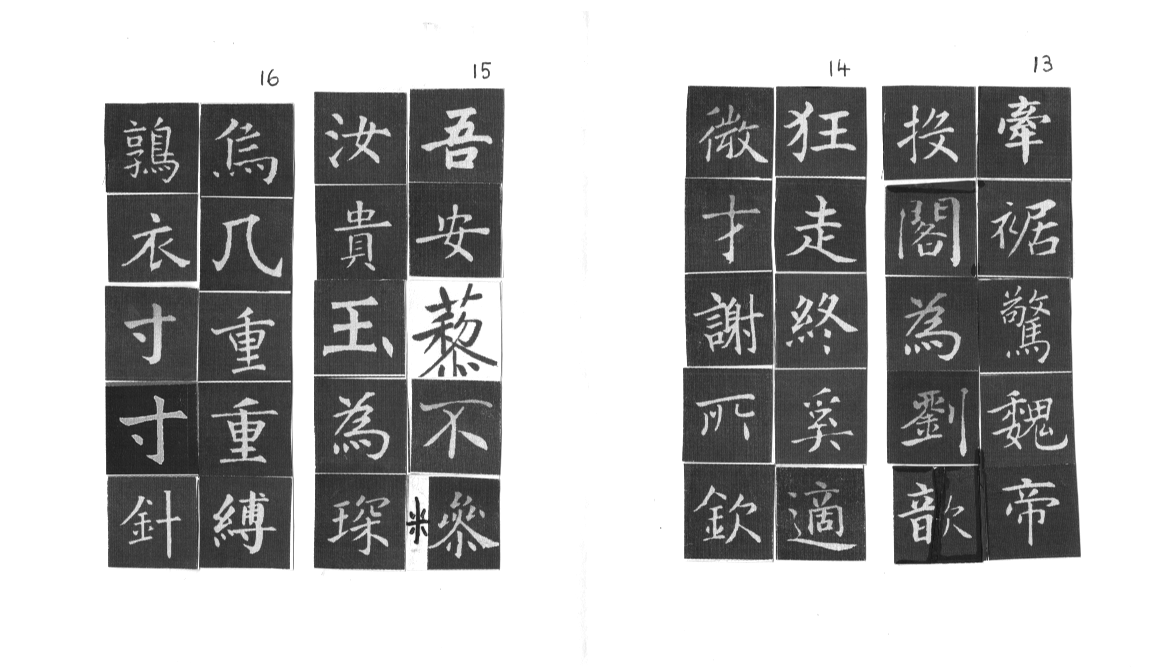 13
牽裾驚魏帝
投閣為劉歆
14
狂走終奚適
微才謝所欽
15
吾安藜不糝
汝貴玉為琛
16
烏几重重縛
鶉衣寸寸針